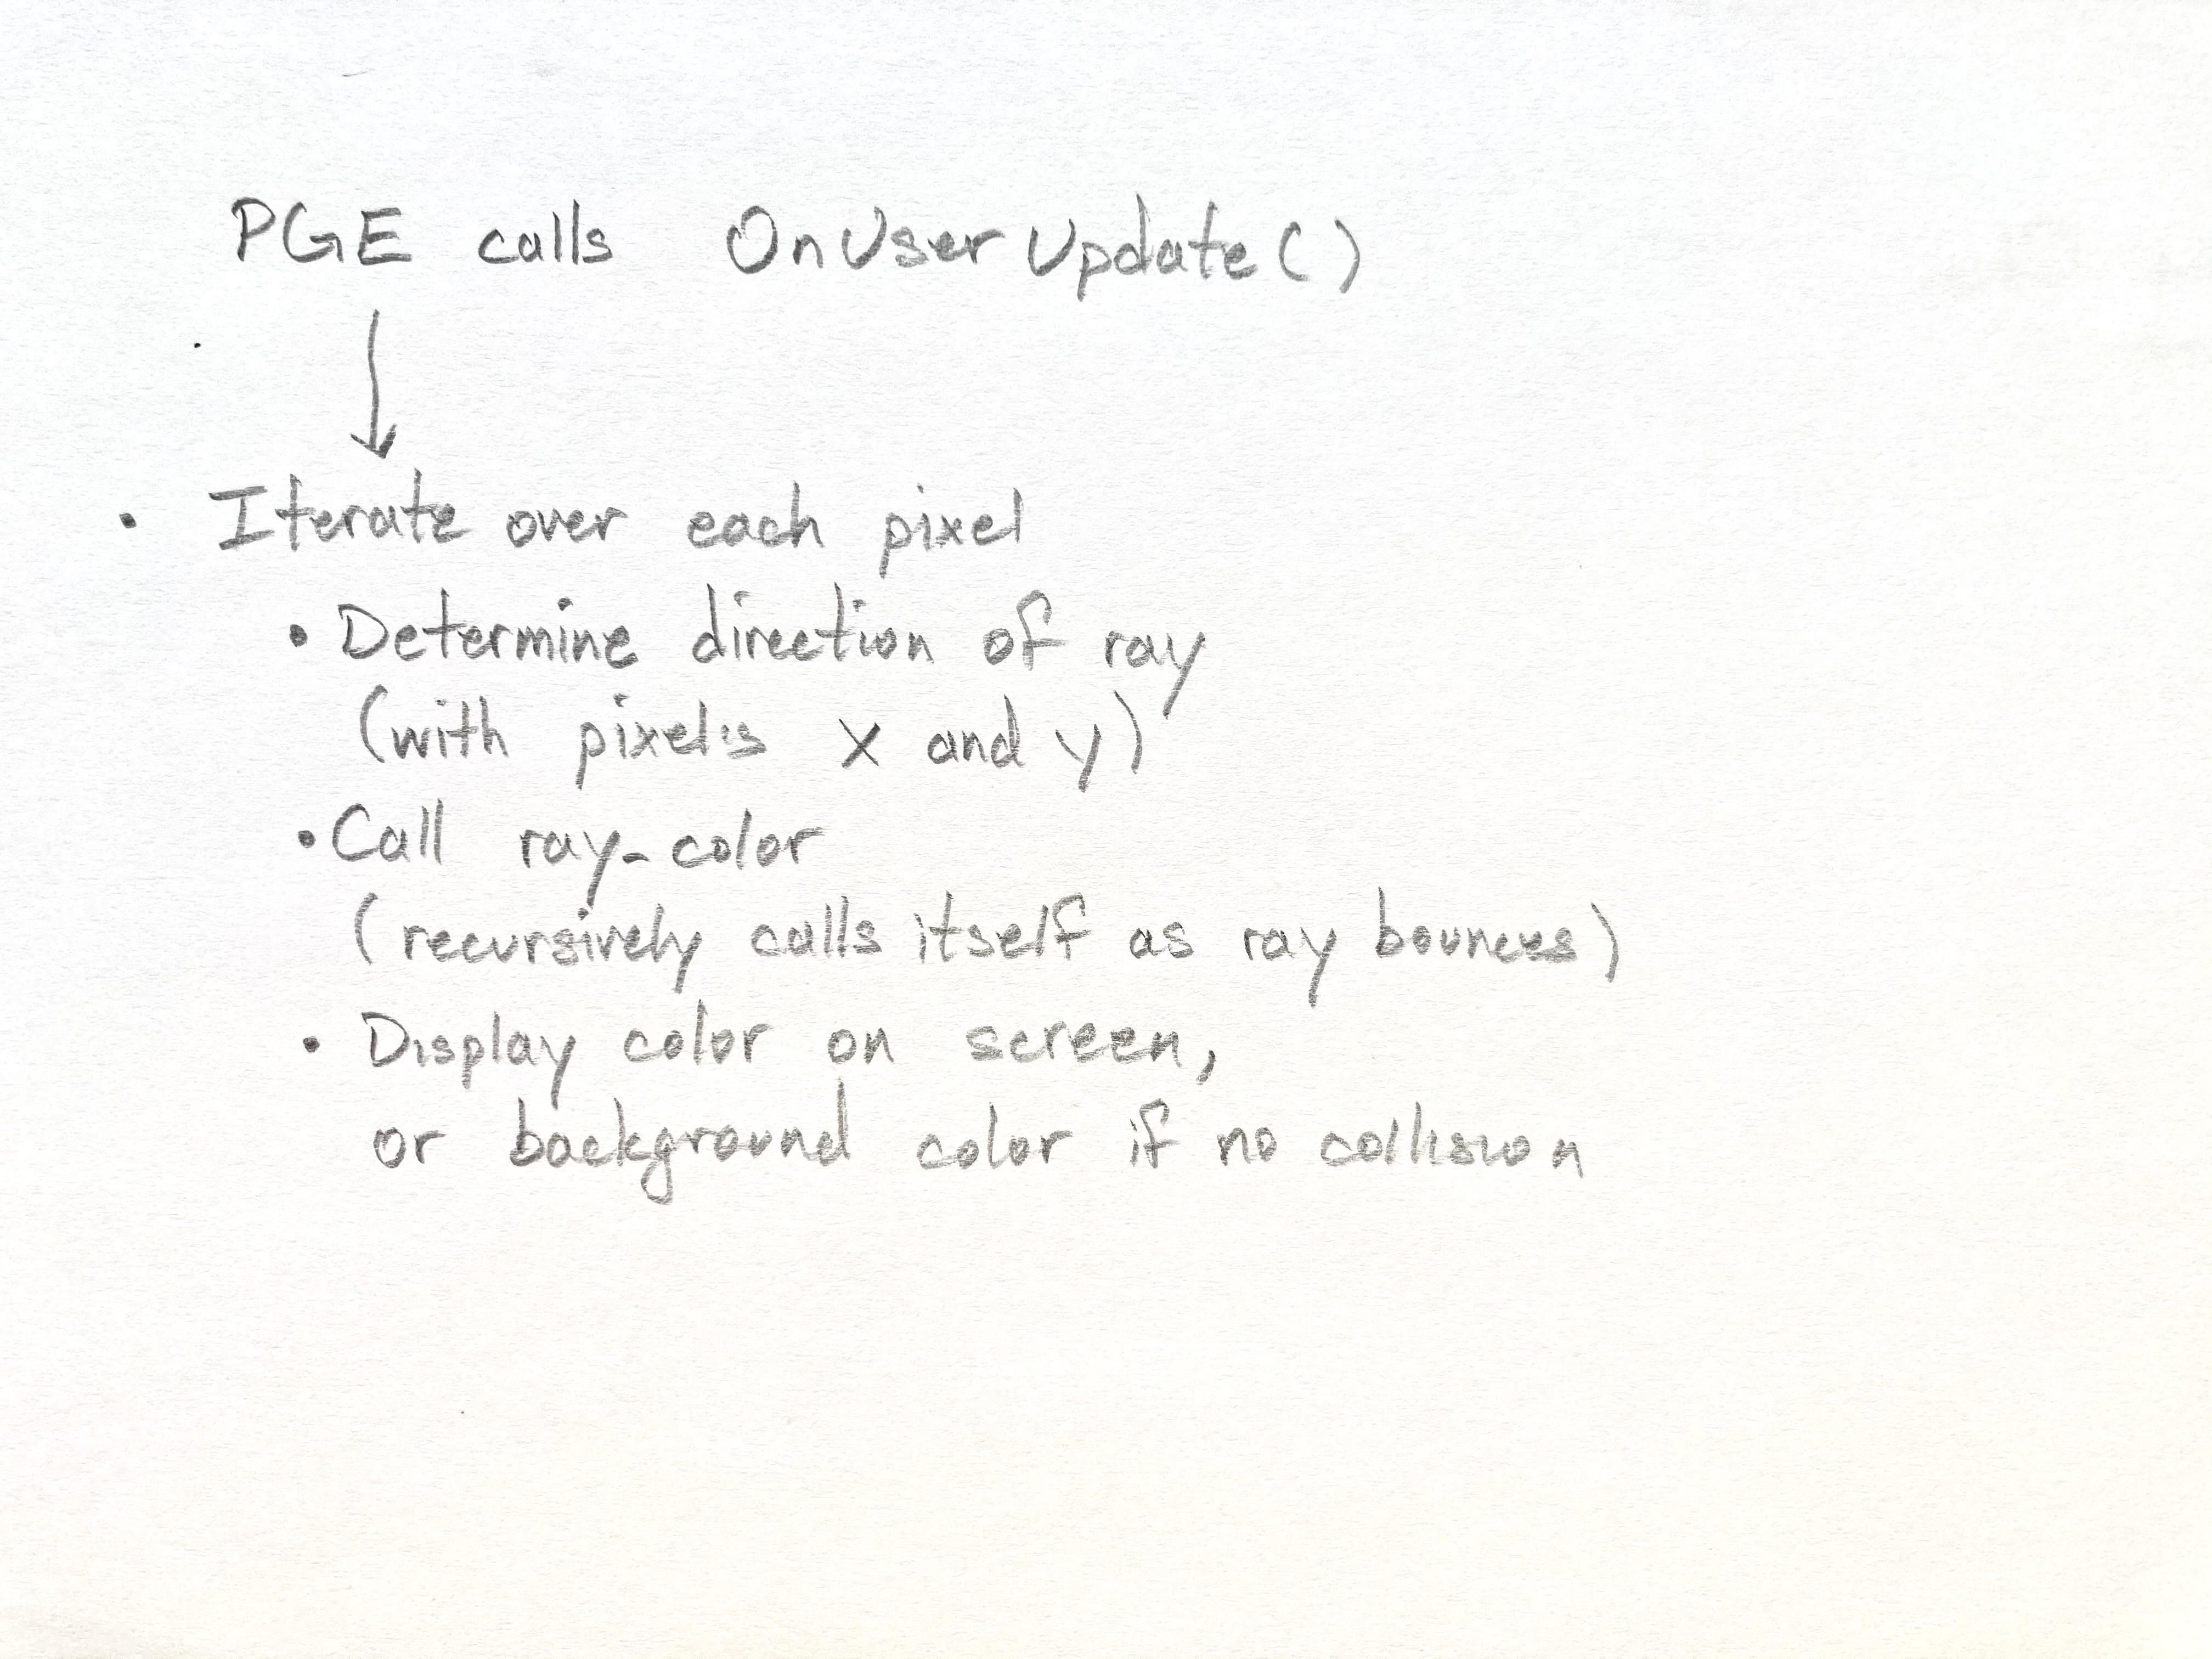 PGE calls OnUserUpdate()
• Iterate over each pixel
• Determine direction of ray
(with pixel's x and y)
• Call ray-color
(recursively calls itself as ray bounces)
• Display color on screen,
or background color if no collision